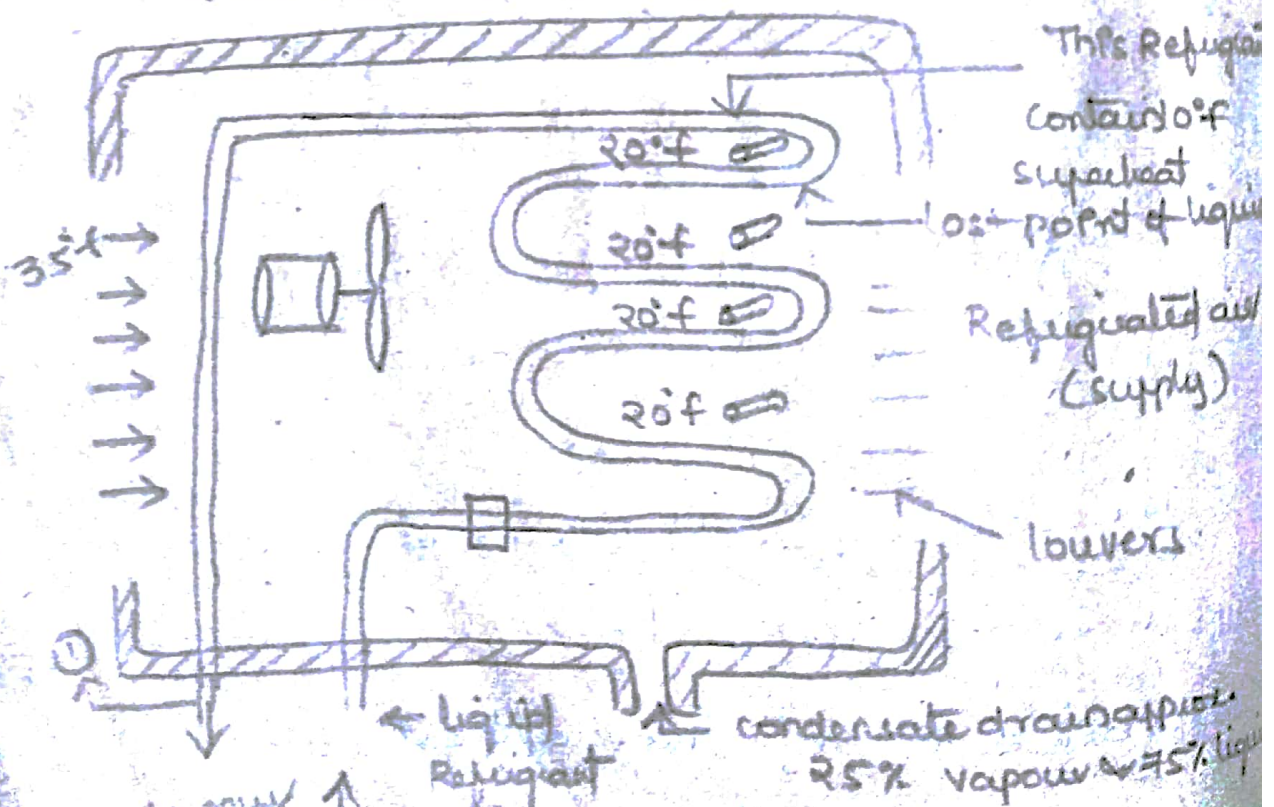 This Refugia
Contains 10°f
superheat
last point of liquid
20°f
20°f
20°f
20°f
35°f
Refugirated air
(supply)
louvers
①
← liquid
Refugirant
condensate drain approx.
25% vapour & 75% liqui